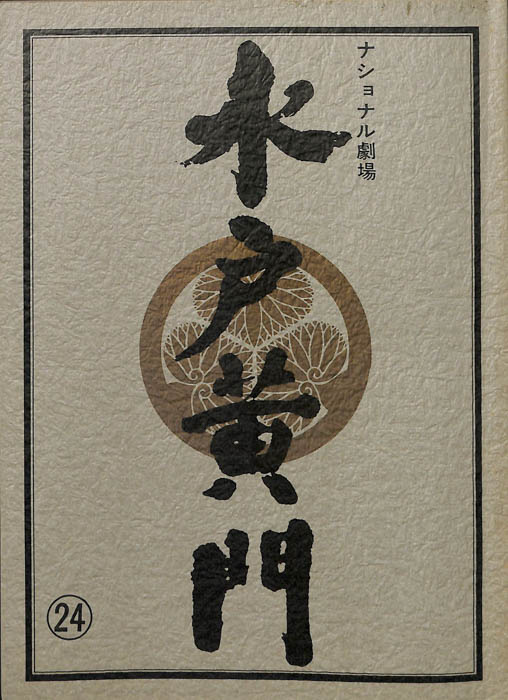 ナショナル劇場
水戸黄門
24